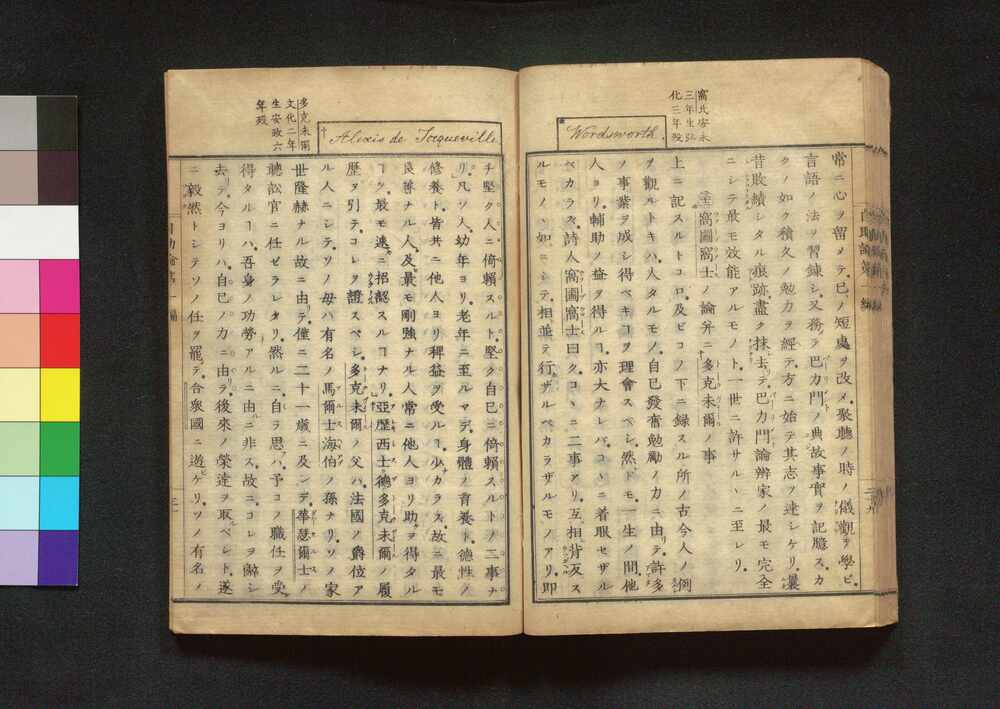 窩氏安永
三年生弘
化三年歿
Wordsworth.
常ニ心ヲ留メテ、已ノ短處ヲ改メ、聚聽ノ時ノ儀觀ヲ學ビ、
言語ノ法ヲ習錬シ、又務テ巴力門ノ典故事實ヲ記臆スカ
クノ如ク積久ノ勉力ヲ經テ、方ニ始テ其志ヲ達シケリ、曩
昔敗績シタル痕跡、盡ク抹去リテ、巴力門論辨家ノ最モ完全
ニシテ最モ效能アルモノト、一世ニ許サルヽニ至レリ、
窩圖窩士ノ論并ニ多克未爾ノ事
上ニ記スルトコロ、及ビコノ下ニ録スル所ノ古今人ノ例
ヲ觀ルトキハ、人タルモノ、自己發奮勉勵ノ力ニ由リテ、許多
ノ事業ヲ成シ得ベキヿヲ理會スベシ、然ドモ、一生ノ間他
人ヨリ輔助ノ益ヲ得ルヿ、亦大ナレバ、コヽニ着眼セザル
ベカラズ、詩人窩圖窩士曰ク、コヽニ二事アリ、互相背反ス
ルモノヽ如ニシテ、相並テ行ザルベカラザルモノアリ、即
多克未爾
文化二年
生安政六
年歿
Alexis de Tocqueville
チ堅ク人ニ倚賴スルト、堅ク自己ニ倚賴スルトノ二事ナ
リ、凡ソ人、幼年ヨリ、老年ニ至ルマデ、身體ノ育養ト、德性ノ
修養ト、皆共ニ他人ヨリ裨益ヲ受ルヿ、少カラズ、故ニ最モ
良善ナル人、及最モ剛強ナル人、常ニ他人ヨリ助ヲ得タル
ヿヲ、最モ速ニ招認スルヿナリ、亞歷西士德多克未爾ノ履
歷ヲ引テ、コレヲ證スベシ、多克未爾ノ父ハ法國ノ爵位ア
ル人ニシテ、ソノ母ハ有名ノ馬爾士海伯ノ孫ナリ、ソノ家
世隆赫ナル故ニ由テ、僅ニ二十一歲ニ及ンデ、華瑟爾士ノ
聽訟官ニ任ゼラレタリ、然ルニ、自ラ思ハク、予コノ職任ヲ受
得タルヿハ、吾身ノ功勞アルニ由ニ非ズ、故ニ、コレヲ辭シ
去リテ、今ヨリハ、自己ノ力ニ由ラ、後來ノ榮達ヲ取ベシト、遂
ニ毅然トシテソノ任ヲ罷テ、合衆國ニ遊ビケリ、ソノ有名ノ